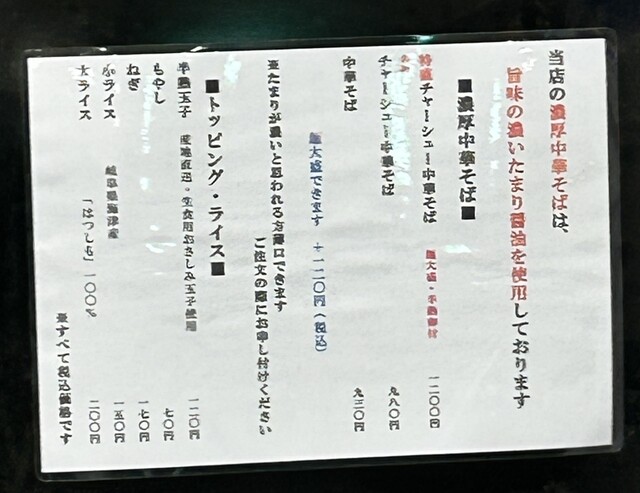 当店の濃厚中華そばは、
旨味の濃いたまり醤油を使用しております
■濃厚中華そば■
特重チャーシュー中華そば 麺大盛・半熟卵付 一二〇〇円
チャーシュー中華そば 九八〇円
中華そば 九二〇円
麺大盛できます +一二〇円(税込)
※たまりが濃いと思われる方薄口できます
ご注文の際にお申し付けください
■トッピング・ライス■
半熟玉子 産地直送・生食用おさしみ玉子使用 一二〇円
もやし 七〇円
ねぎ 一七〇円
小ライス 一五〇円
大ライス 二〇〇円
岐阜県海津産
「はつしも」一〇〇%
※すべて税込価格です